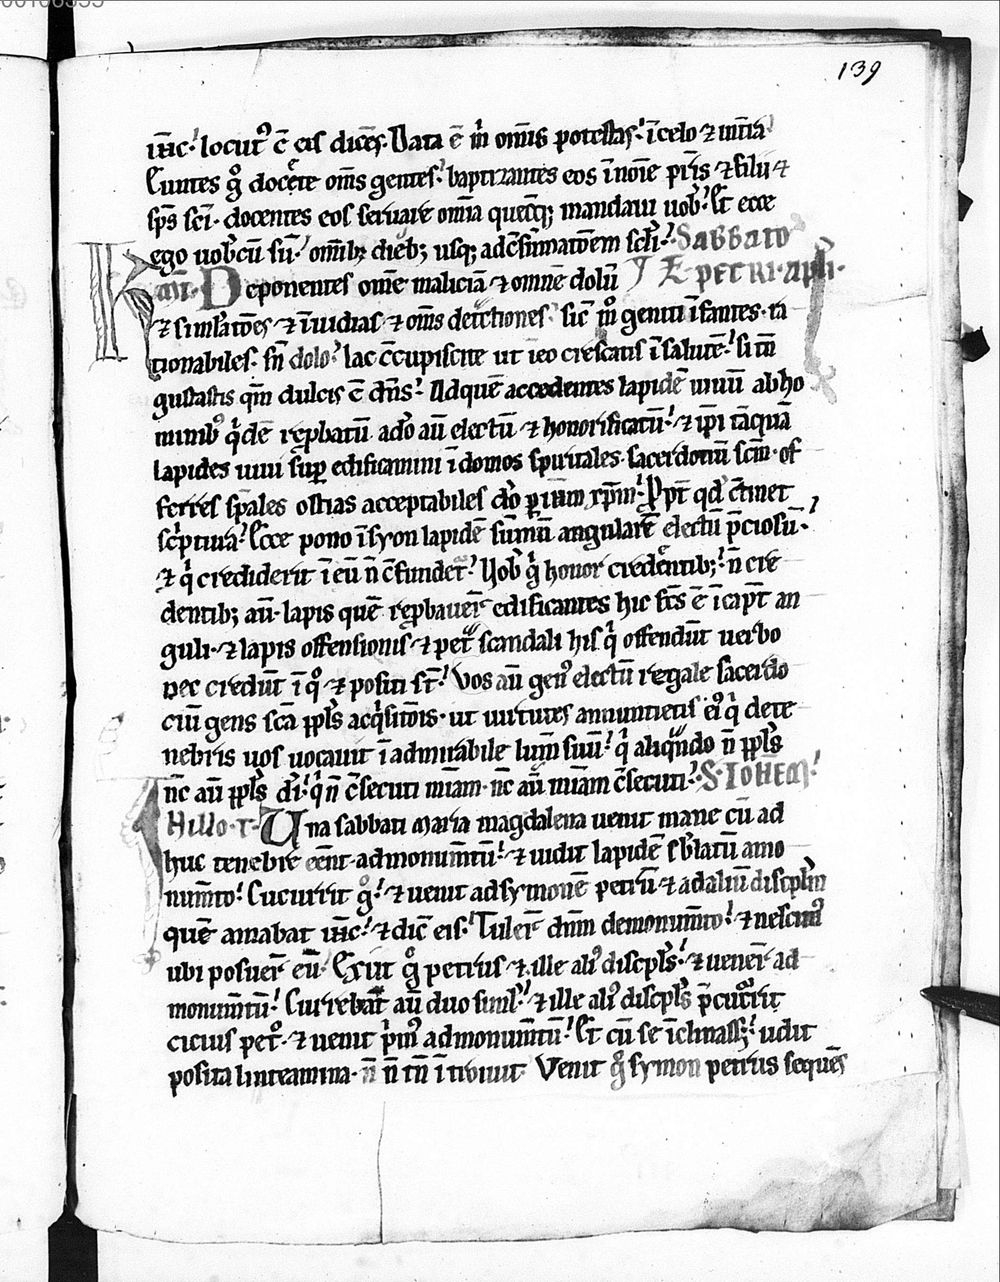 139
ih̅c᷑ locut᷒ ē eis dice̅s. Data ē m̅ om̅is potestas᷑ i̅ celo ⁊ int̅ra᷑
Euntes g̊ docete om̅s gentes᷑ baptizantes eos i̅ noi̅e pr̅is ⁊ filii ⁊
sp̅s sc̅i. docentes eos seruare om̅ia quecq; mandaui uob᷑ Et ecce
ego uob̅cu̅ su̅᷑ om̅ib; dieb; usq; ad c̅su̅mato̅em sc̅li᷑ Sabbato
am̅. Deponentes om̅e malicia̅ ⁊ omne̅ dolu̅ Ep̅ PETRI. apl̅i.
⁊ simlato̅es ⁊ i̅uidias ⁊ om̅s det̅ctiones᷑ sic m̊ geniti i̅fantes. ra
tionabiles. sn̅ dolo᷑ lac c̅cupiscite ut i̅ eo crescatis i̅ salute̅᷑ si tn̅
gustastis qm̅ dulcis ē dn̅s᷑ Ad que̅ accedentes lapide̅ uiuu̅ ab ho
minib᷒ q̇de̅ rep̱batu̅ a do̅ au̅ electu̅ ⁊ honorificatu̅᷑ ⁊ ip̅i ta̅qua̅
lapides uiui sup̱ edificamini i̅ domos spiritales. sacerdotiu̅ sc̅m. of
ferres sp̅ales ostias acceptabiles do̅ p̱ ih̅m xp̅m᷑ Ppt̅ qd̅ c̅tinet
sċptura᷑ Ecce pono i̅ syon lapide̅ su̅mu̅ angulare̅ electu̅ p̅ciosu̅.
⁊ q̇ crediderit i̅ eu̅ n̅ c̅fundet᷑ Uob̅ g̊ honor credentib;᷑ n̅ cre
dentib; au̅. lapis que̅ rep̱bauer̅ edificantes hic fc̅s ē i̅ capt̅ an
guli. ⁊ lapis offensionis ⁊ pet̅ scandali his q̇ offendu̅t uerbo
nec credu̅t i̅ q̊ ⁊ positi st̅᷑ Vos au̅ gen᷒ electu̅ regale sacerdo
ciu̅ gens sc̅a pp̅ls acq̇sito̅is. ut uirtutes annuntietis ei᷒ q̇ de te
nebris uos uocauit i̅ admirabile lum̅ suu̅᷑ q̇ aliqn̅do n̅ pp̅ls
nc̅ au̅ pp̅ls di̅᷑ q̇ n̅ c̅secuti mi̅am. nc̅ au̅ mi̅am c̅secuti᷑ S. IOHEM᷑
Hillo. t. Una sabbati maria magdalena uenit mane cu̅ ad
huc tenebre ee̅nt. ad monum̅tu̅᷑ ⁊ uidit lapide̅ sb̅latu̅ a mo
num̅to᷑ Cucurrit g̊᷑ ⁊ uenit ad symone̅ petru̅ ⁊ ad aliu̅ discpl̅m
que̅ amabat ih̅c᷑ ⁊ dic̅ eis᷑ Tuler̅ dn̅m de monum̅to᷑ ⁊ nescim᷒
ubi posuer̅ eu̅᷑ Exiit g̊ petrus ⁊ ille ali᷒ discpl̅s᷑ ⁊ uener̅ ad
monum̅tu̅᷑ Currebat̅ au̅ duo simł᷑ ⁊ ille ali᷒ discpl̅s p̅cucurrit
cicius pet̊. ⁊ uenit ṗm᷒ ad monum̅tu̅᷑ Et cu̅ se i̅clinass;᷑ uidit
posita linteamina. n̅ n̅ tn̅ i̅troiuit. Venit g̊ symon petrus seque̅s